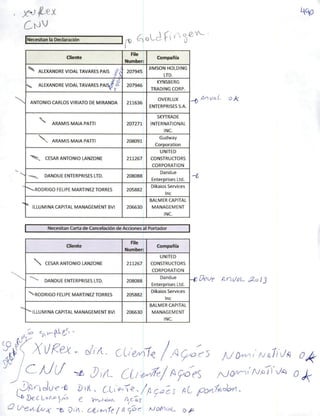 XVRex
CNV
490
Necesitan la Declaración
p. GoldFinger.
Cliente File Number: Compañía
ALEXANDRE VIDAL TAVARES PAIS 207945 JIMSON HOLDING LTD.
ALEXANDRE VIDAL TAVARES PAIS 207946 KYNSBERG TRADING CORP.
ANTONIO CARLOS VIRIATO DE MIRANDA 211636 OVERLUX ENTERPRISES S.A.
ok
ARAMIS MAIA PATTI 207271 SKYTRADE INTERNATIONAL INC.
ARAMIS MAIA PATTI 208091 Gudway Corporation
CESAR ANTONIO LANZONE 211267 UNITED CONSTRUCTORS CORPORATION
DANDUE ENTERPRISES LTD. 208088 Dandue Enterprises Ltd.
RODRIGO FELIPE MARTINEZ TORRES 205882 Dikasos Services Inc
ILLUMINA CAPITAL MANAGEMENT BVI 206630 BALMER CAPITAL MANAGEMENT INC.
Necesitan Carta de Cancelación de Acciones al Portador
Cliente File Number: Compañía
CESAR ANTONIO LANZONE 211267 UNITED CONSTRUCTORS CORPORATION
DANDUE ENTERPRISES LTD. 208088 Dandue Enterprises Ltd.
Anual 2013
RODRIGO FELIPE MARTINEZ TORRES 205882 Dikasos Services Inc
ILLUMINA CAPITAL MANAGEMENT BVI 206630 BALMER CAPITAL MANAGEMENT INC.
XVRex. Dir. Cliente / Ações Nominativa ok
CNV Dir. Cliente / Ações Nominativa ok
Dandue Dir. Cliente. / Ações AL portador.
Overlux Dir. Cliente / Ações Nominat. ok